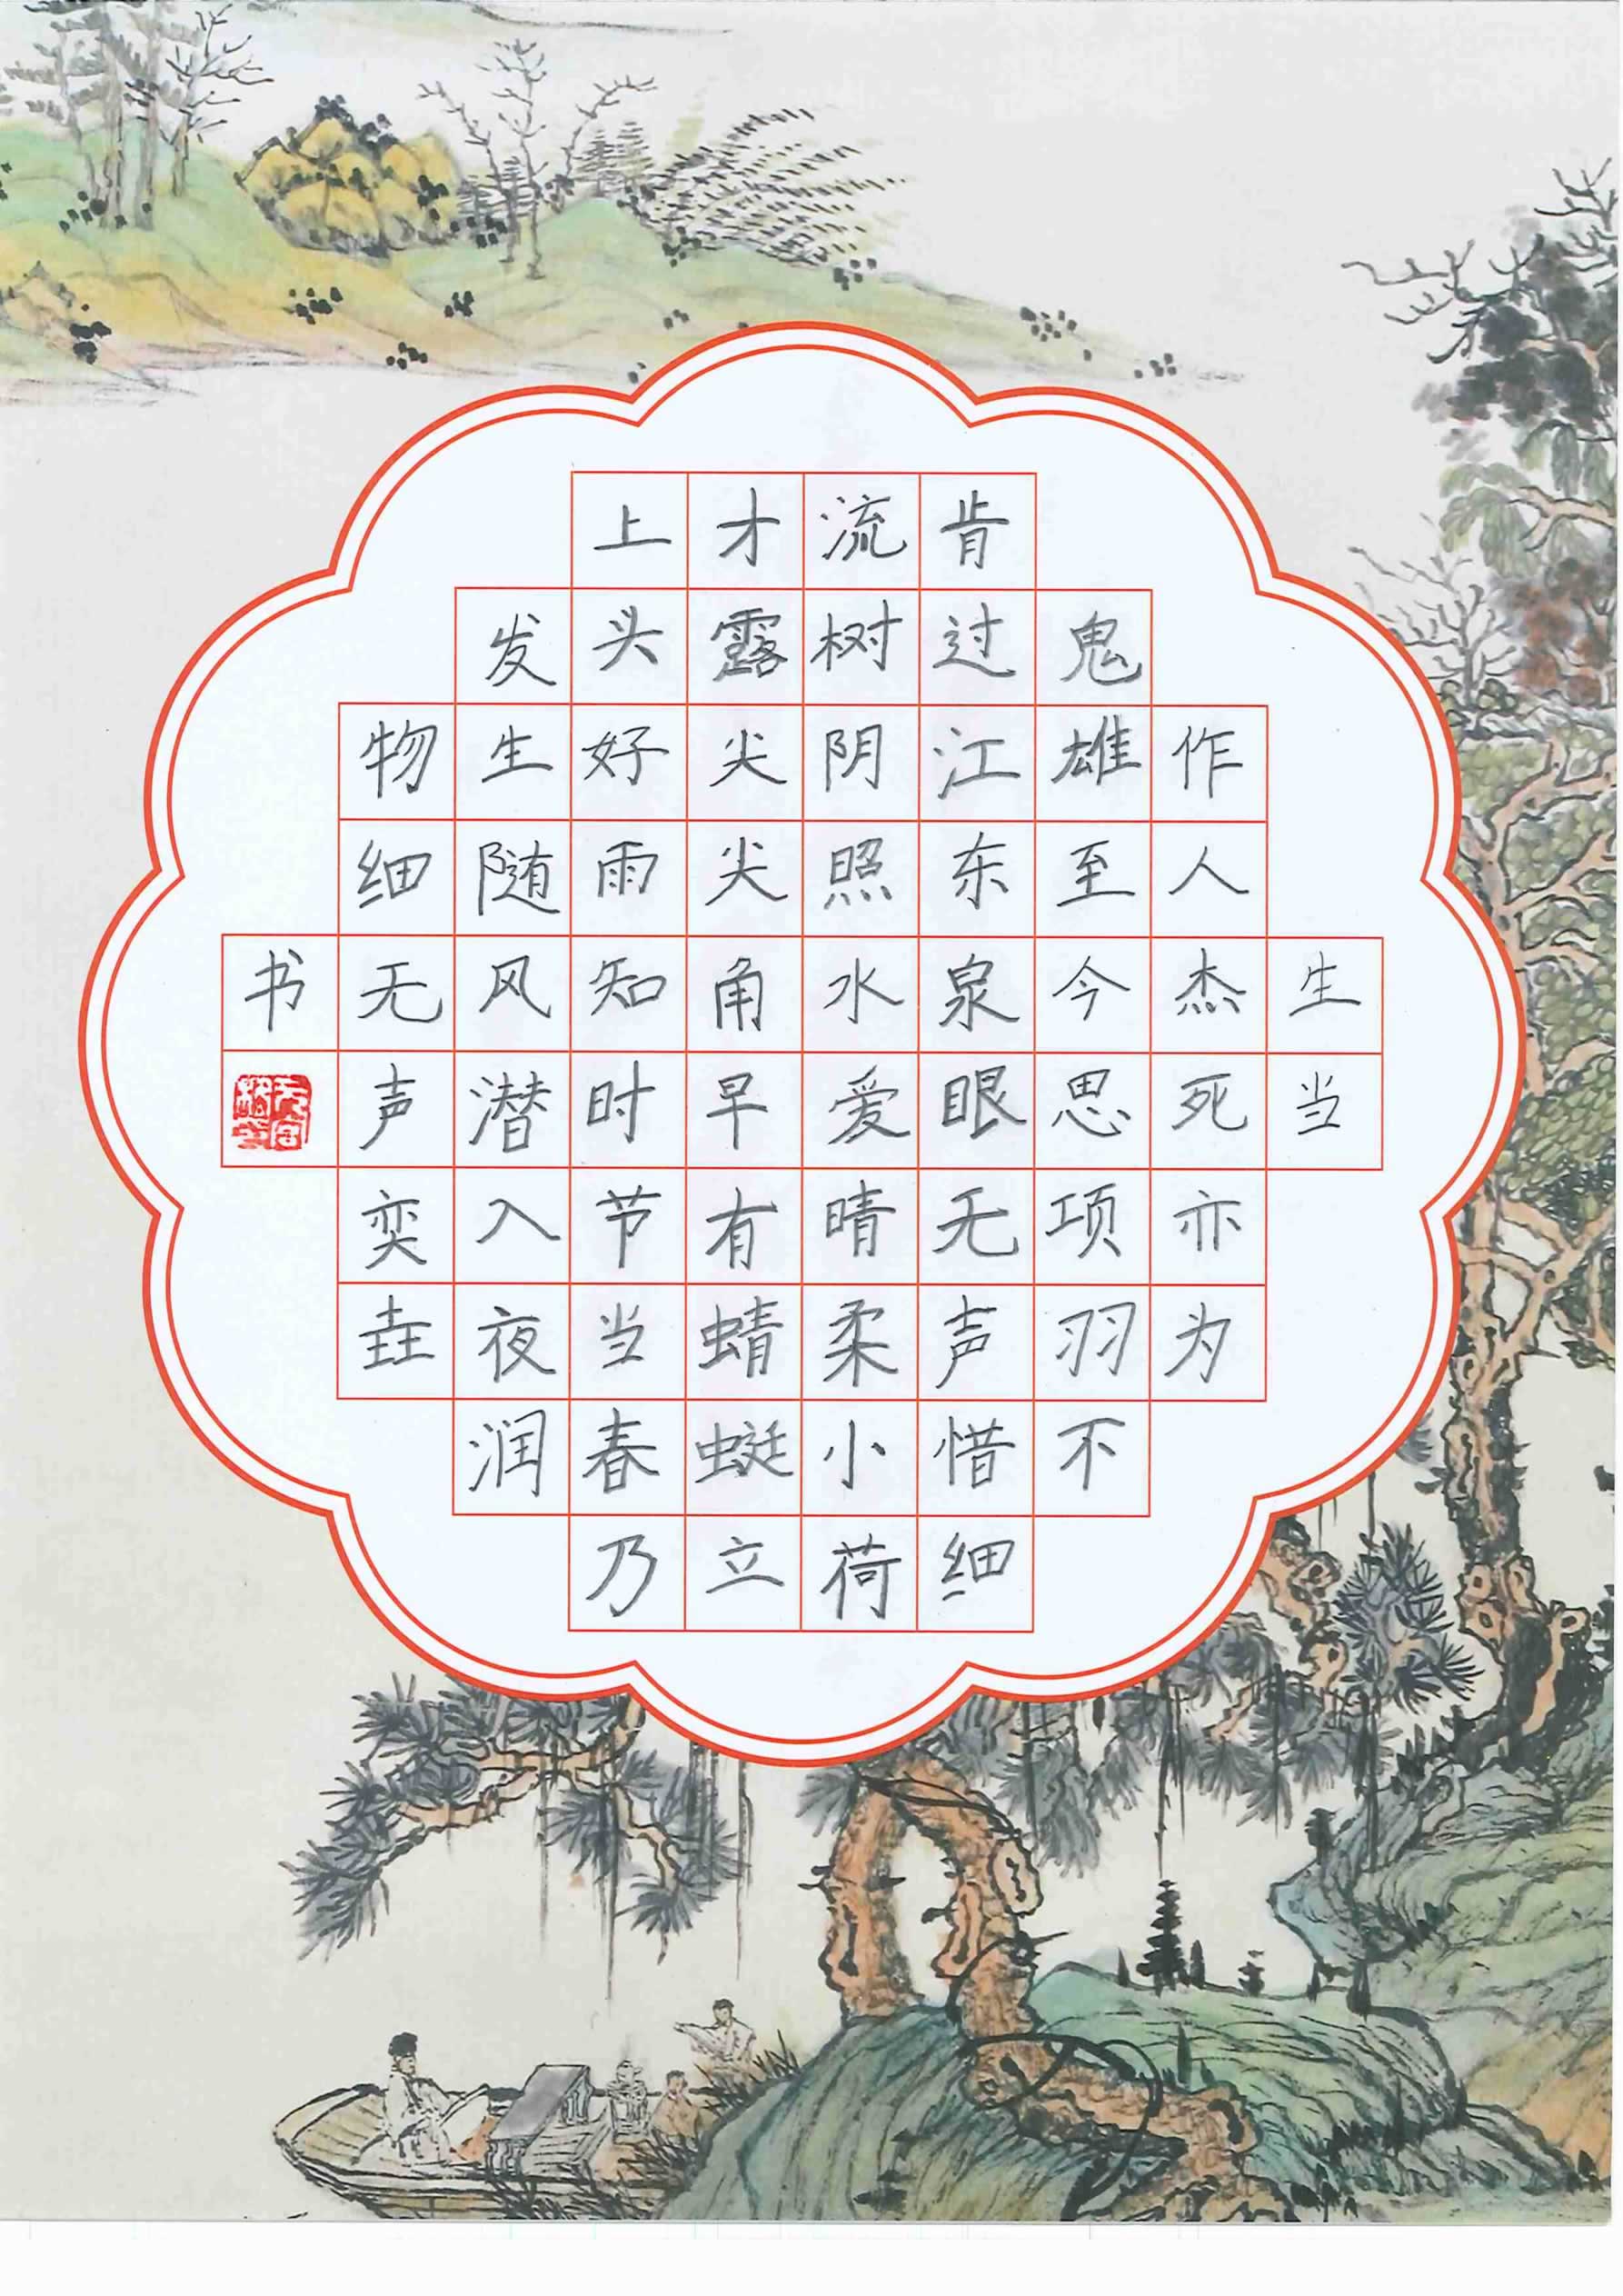 生当
作人杰死亦为
鬼雄至今思项羽不
肯过江东泉眼无声惜细
流树阴照水爱晴柔小荷
才露尖尖角早有蜻蜓立
上头好雨知时节当春乃
发生随风潜入夜润
物细无声奕垚
书